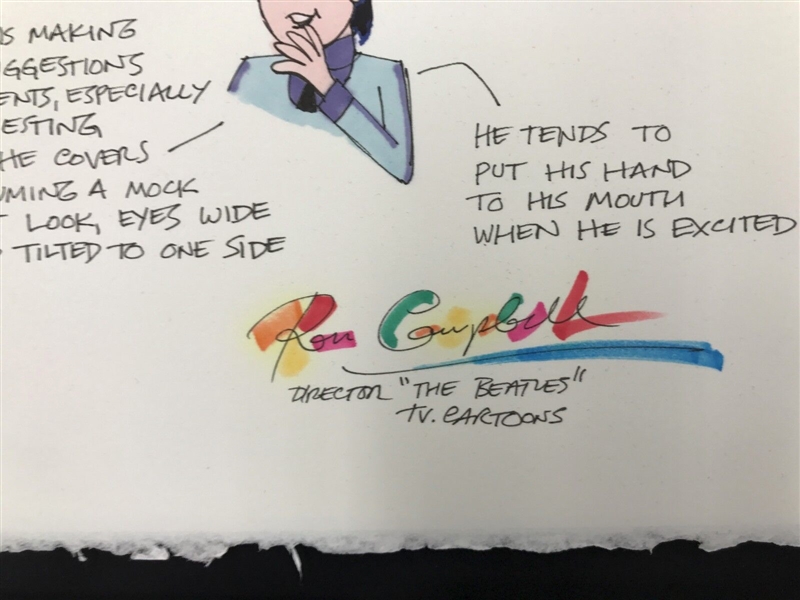 IS MAKING
GGESTIONS
ENTS, ESPECIALLY
ESTING
HE COVERS
UMING A MOCK
T LOOK, EYES WIDE
TILTED TO ONE SIDE
HE TENDS TO
PUT HIS HAND
TO HIS MOUTH
WHEN HE IS EXCITED
Ron Campbell
DIRECTOR "THE BEATLES"
TV. CARTOONS